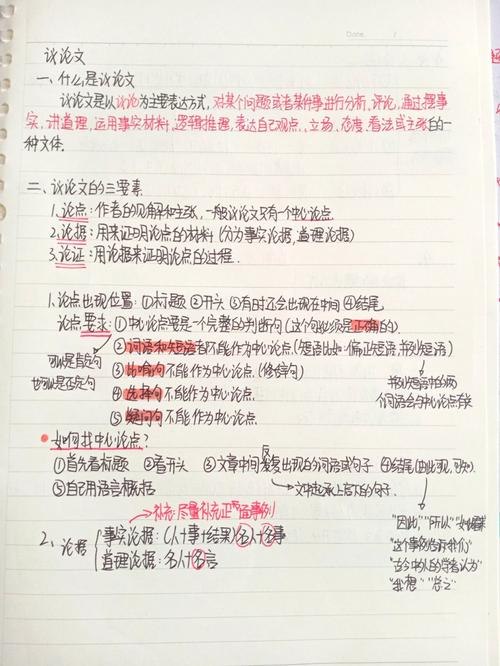 Date. /
议论文
一、什么是议论文
议论文是以议论为主要表达方式，对某个问题或者某件事进行分析、评论，通过摆事
实、讲道理，运用事实材料、逻辑推理，表达自己观点、立场、态度、看法或主张的一
种文体.
二、议论文的三要素.
1.论点：作者的见解和主张，一般议论文只有一个中心论点.
2.论据：用来证明论点的材料（分为事实论据，道理论据）
3.论证：用论据来证明论点的过程.
1.论点出现位置：①标题 ②开头 ③有时还会出现在中间 ④结尾
论点要求：①中心论点要是一个完整的判断句（这个句必须是正确的）.
可以是肯定句
也可以是否定句
②词语和短语都不能作为中心论点.（短语比如：偏正短语，并列短语）
③比喻句不能作为中心论点.（修辞句）
④选择句不能作为中心论点
⑤疑问句不能作为中心论点
并列短语中的两
个词语会与中心论点有关
如何找中心论点？
①首先看标题 ②看开头 ③文章中间反复出现的词语或句子 ④结尾（由此可见，可知）
⑤自己用语言概括
文中起承上启下的句子.
补充：尽量补充正面事例
2、论据
事实论据：（人+事+结果）名人+名事
道理论据：名人+名言
"因此" "所以"
"这个事例告诉我们"
"古今中外的学者认为"
"我想" "总之"